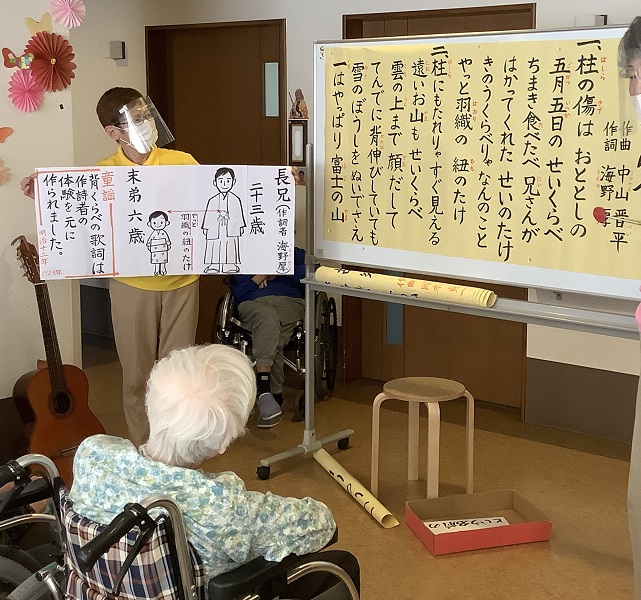 作曲 中山晋平
作詞 海野厚
一、柱の傷は おととしの
五月五日の せいくらべ
ちまき食べたべ 兄さんが
はかってくれた せいのたけ
きのうくらべりゃ なんのこと
やっと羽織の 紐のたけ
二、柱にもたれりゃ すぐ見える
遠いお山も せいくらべ
雲の上まで 顔だして
てんでに背伸び していても
雪のぼうしを ぬいでさえ
一はやっぱり 富士の山
長兄(作詞者 海野厚)
二十三歳
やっと
羽織の紐のたけ
末弟 六歳
童謡
背くらべの歌詞は
作詩者の
体験を元に
作られました。
明治十二年
1923年
という名前の